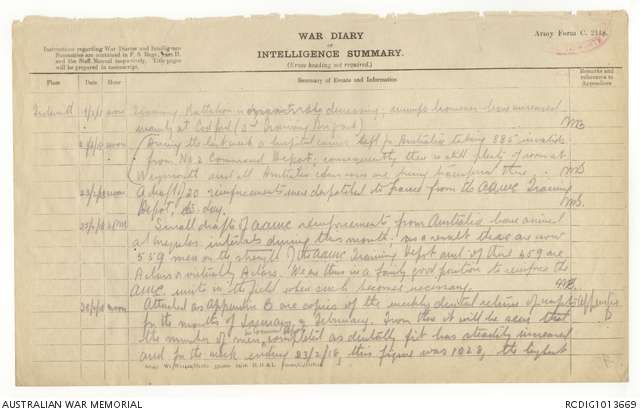 Army Form C. 2118.
WAR DIARY
OF
INTELLIGENCE SUMMARY.
(Erase heading not required.)
Instructions regarding War Diaries and Intelligence
Summaries are contained in F. S. Regs., Part II.
and the Staff Manual respectively. Title pages
will be prepared in manuscript.
Place Date Hour Summary of Events and Information Remarks and references to Appendices
noon Training Battalion is decreasing; mumps however have increased
mainly at Codford (3rd Training Brigade)
noon During the last week a hospital carrier left for Australia taking 885 invalids
from No 2 Command Depot; consequently there is still plenty of room at
Weymouth and all Australian
noon A draft of 20 reinforcements were despatched to France from the AAMC Training
Depot, to-day.
Small drafts of AAMC reinforcements from Australia have arrived
at irregular intervals during this month. As a result there are now
559 men on the strength of the AAMC Training Depot and of this 459 are
A class or virtually A class. We are thus in a fairly good position to reinforce the
AAMC units in the field when such becomes necessary.
noon Attached as Appendix B are copies of the weekly dental returns of
for the months of January & February. From this it will be seen that
the number of men completed as dentally fit has steadily increased
and for the week ending 23/2/18, this figure was 1828, the highest
Appendix
B
AUSTRALIAN WAR MEMORIAL
RCDIG1013669